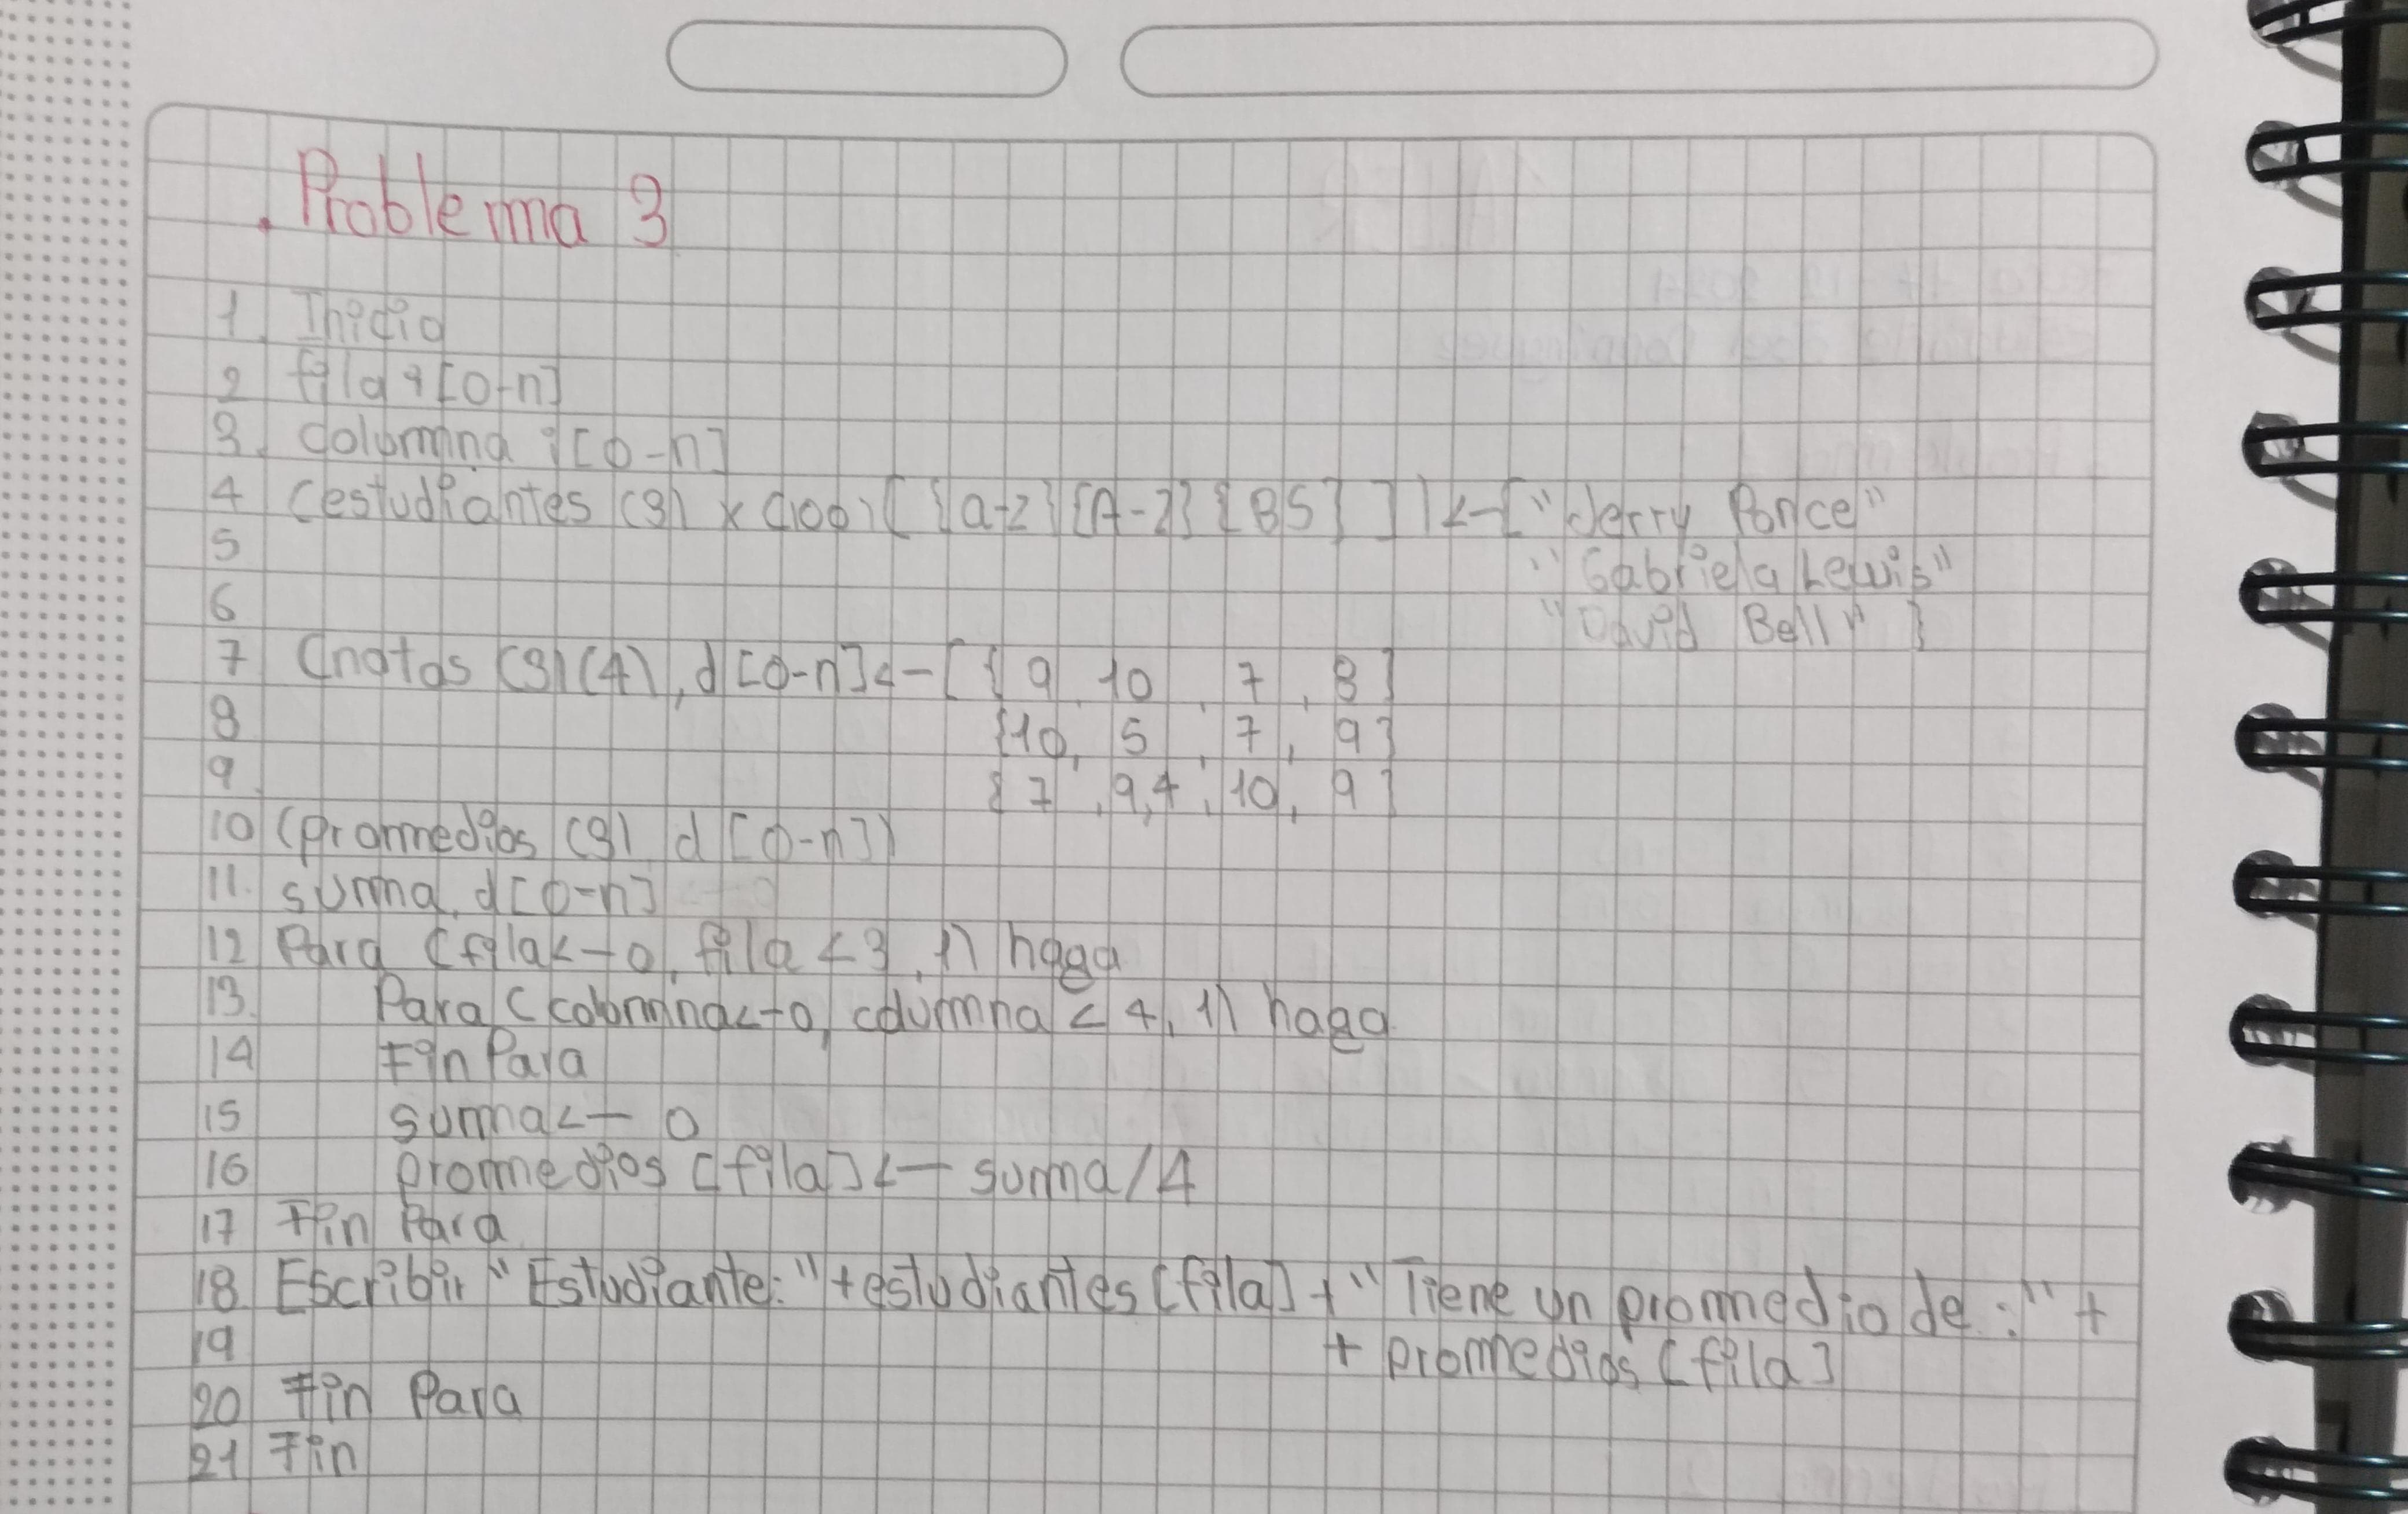 Problema 3
1. Inicio
2 fila i [0-n]
3. columna i [0-n]
4 (estudiantes (3) x c100) [ {a-z} {A-Z} {BS} ] ) <- ["Jerry Ponce"
5 "Gabriela Lewis"
6 "David Bell" }
7 (notas (3)(4), d [0-n] <- [ { 9, 10, 7, 8 }
8 {10, 5, 7, 9}
9 { 7, 9,4, 10, 9 }
10 (promedios (3) d [0-n])
11. suma, d [0-n]
12 Para (fila <- 0, fila < 3, 1) haga
13. Para (columna <- 0, columna < 4, 1) haga
14 Fin Para
15 suma <- 0
16 promedios [fila] <- suma / 4
17 Fin Para
18. Escribir "Estudiante: " + estudiantes [fila] + " Tiene un promedio de: " +
19 + promedios [fila]
20 Fin Para
21 Fin